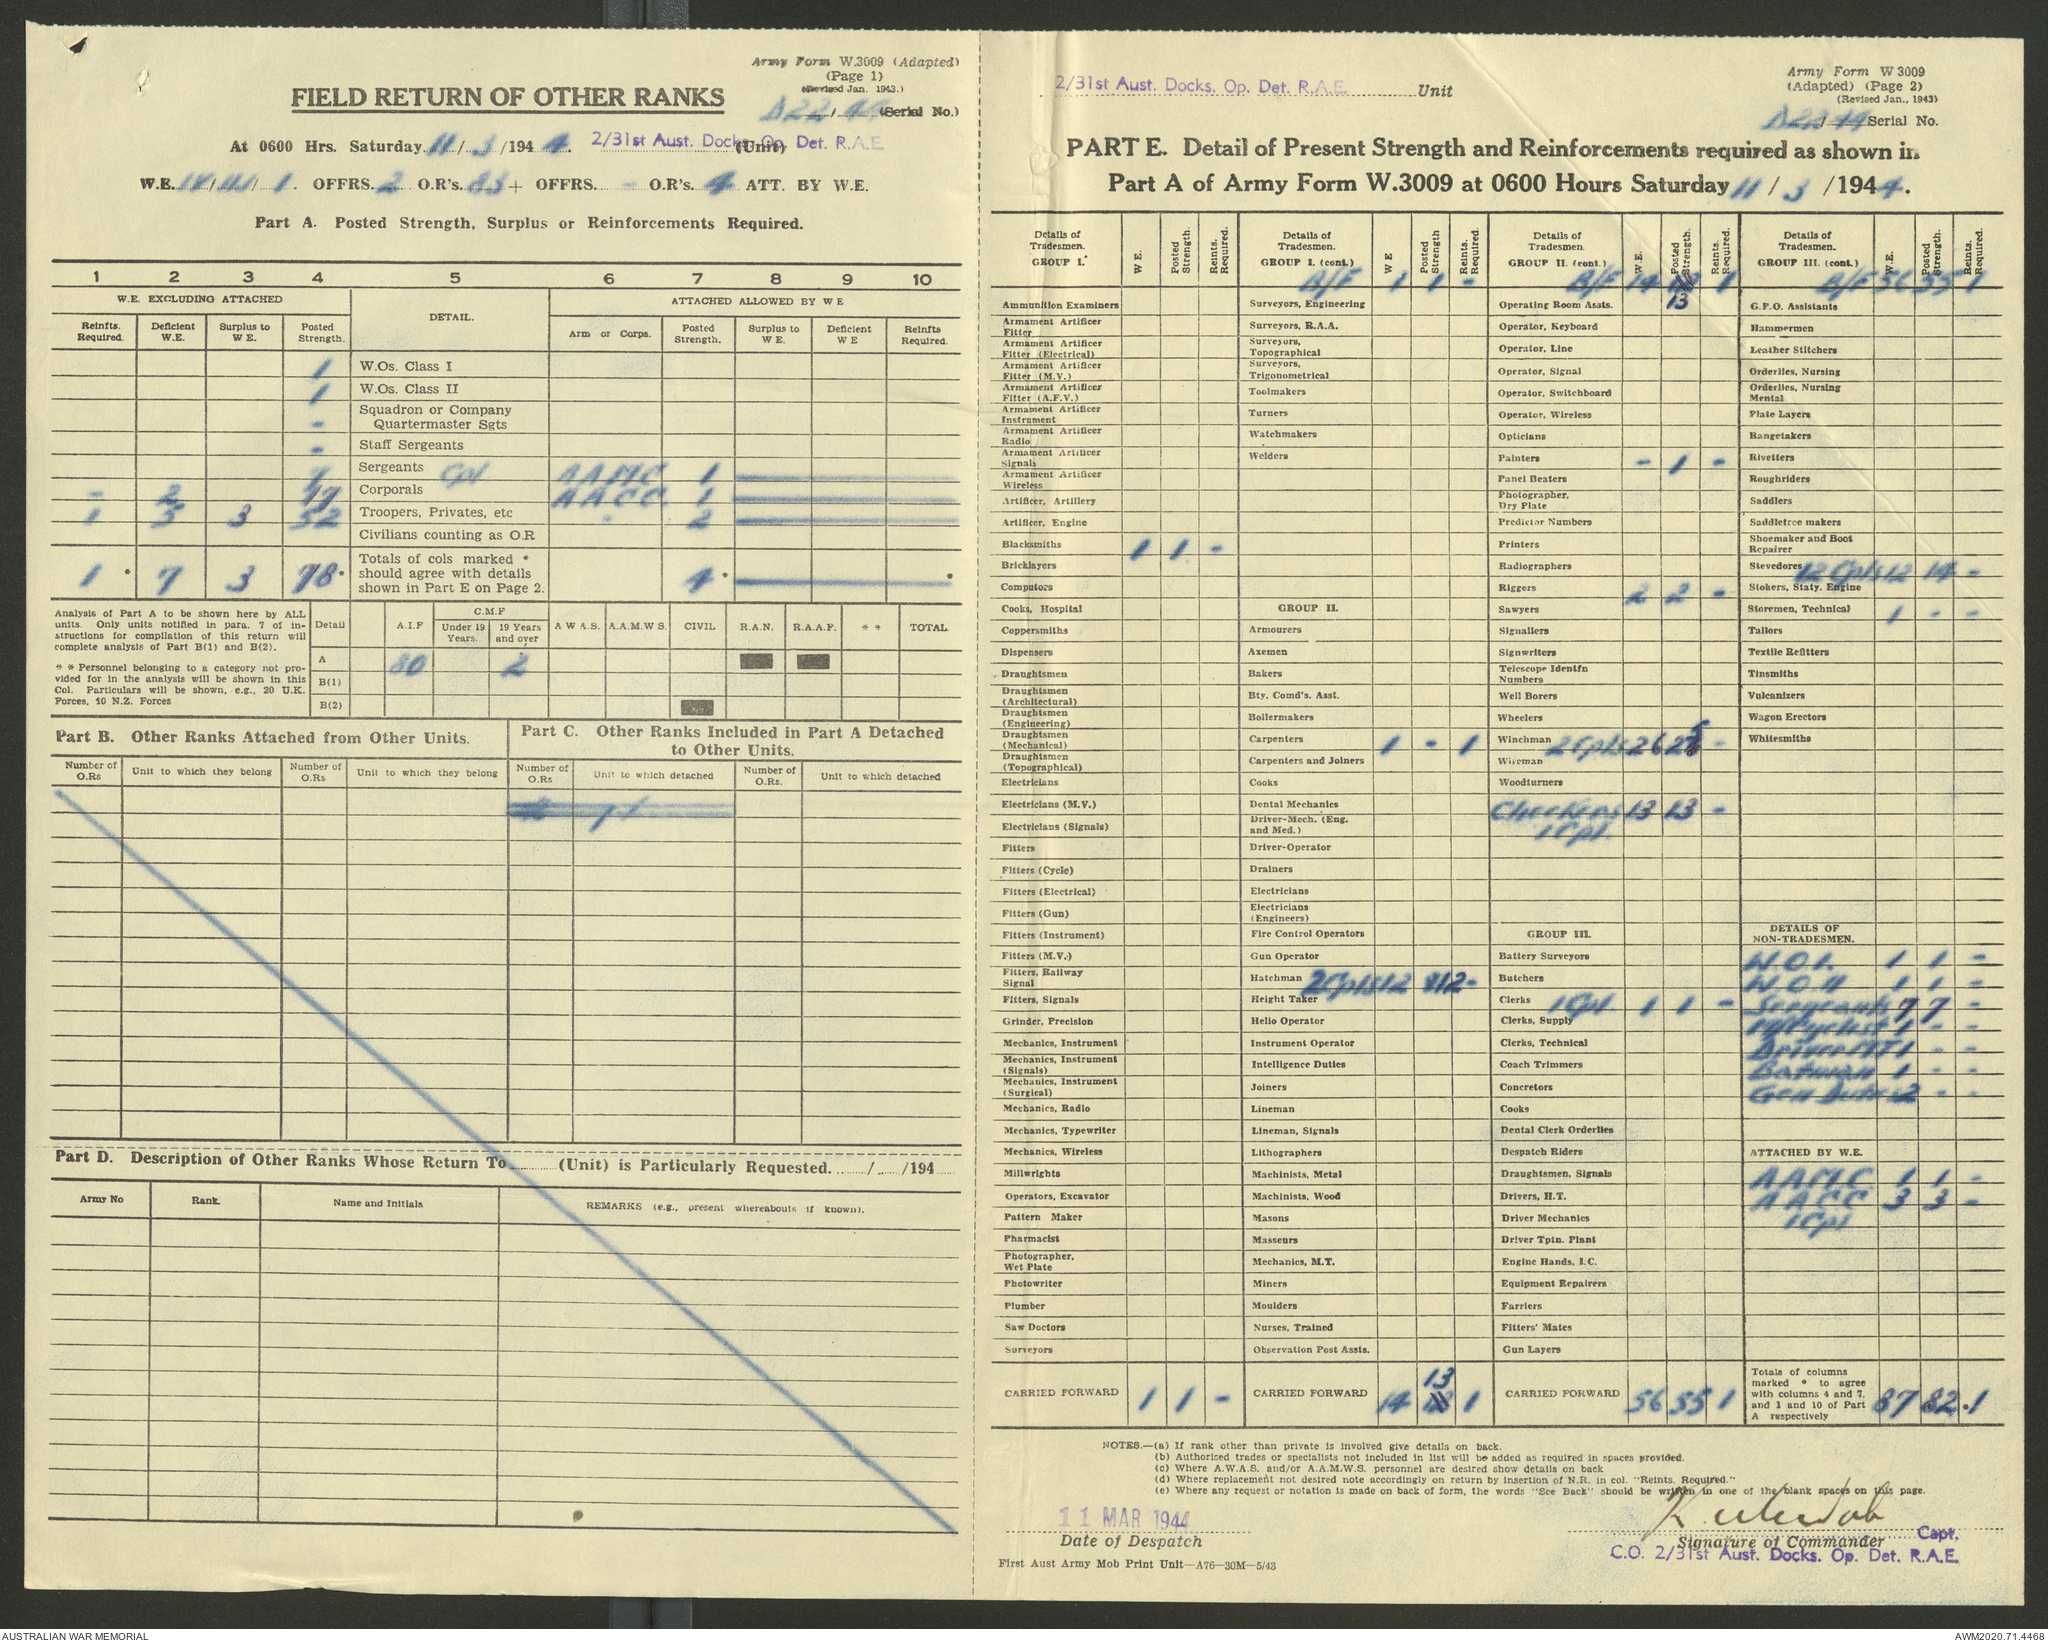 Army Form W.3009 (Adapted)
(Page 1)
(Revised Jan. 1943.)
FIELD RETURN OF OTHER RANKS
(Serial No.)
At 0600 Hrs. Saturday 11/3/1944. 2/31st Aust. Docks. Op. Det. R.A.E. (Unit)
W.E. OFFRS. 2 O.R's. 83 + OFFRS. - O.R's. 4 ATT. BY W.E.
Part A. Posted Strength, Surplus or Reinforcements Required.
1 2 3 4 5 6 7 8 9 10
W.E. EXCLUDING ATTACHED DETAIL. ATTACHED ALLOWED BY W E
Reinfts. Required. Deficient W.E. Surplus to W E. Posted Strength. Arm or Corps. Posted Strength. Surplus to W E. Deficient W E Reinfts Required.
1 W.Os. Class I
1 W.Os. Class II
- Squadron or Company Quartermaster Sgts
- Staff Sergeants
7 Sergeants Cpl A A M C 1
- 2 17 Corporals A A C C. 1
1 5 3 52 Troopers, Privates, etc - 2
Civilians counting as O.R
1 * 7 3 78 * Totals of cols marked * should agree with details shown in Part E on Page 2. 4 * *
Analysis of Part A to be shown here by ALL units. Only units notified in para. 7 of instructions for compilation of this return will complete analysis of Part B(1) and B(2).
* * Personnel belonging to a category not provided for in the analysis will be shown in this Col. Particulars will be shown, e.g., 20 U.K. Forces, 10 N.Z. Forces
Detail A.I.F C.M.F Under 19 Years. 19 Years and over A W A S. A.A.M.W S. CIVIL R.A.N. R.A.A.F. * * TOTAL
A 80 2
B(1)
B(2)
Part B. Other Ranks Attached from Other Units.
Number of O.Rs Unit to which they belong Number of O.Rs Unit to which they belong
Part C. Other Ranks Included in Part A Detached to Other Units.
Number of O.Rs Unit to which detached Number of O.Rs. Unit to which detached
Part D. Description of Other Ranks Whose Return To (Unit) is Particularly Requested. / /194
Army No Rank. Name and Initials REMARKS (e.g., present whereabouts if known).
2/31st Aust. Docks. Op. Det. R.A.E. Unit
Army Form W 3009
(Adapted) (Page 2)
(Revised Jan., 1943)
Serial No.
PART E. Detail of Present Strength and Reinforcements required as shown in
Part A of Army Form W.3009 at 0600 Hours Saturday 11/3/1944.
Details of Tradesmen. GROUP I. W E. Posted Strength. Reints. Required.
Ammunition Examiners
Armament Artificer Fitter
Armament Artificer Fitter (Electrical)
Armament Artificer Fitter (M.V.)
Armament Artificer Fitter (A.F.V.)
Armament Artificer Instrument
Armament Artificer Radio
Armament Artificer Signals
Armament Artificer Wireless
Artificer, Artillery
Artificer, Engine
Blacksmiths 1 1 -
Bricklayers
Computors
Cooks, Hospital
Coppersmiths
Dispensers
Draughtsmen
Draughtsmen (Architectural)
Draughtsmen (Engineering)
Draughtsmen (Mechanical)
Draughtsmen (Topographical)
Electricians
Electricians (M.V.)
Electricians (Signals)
Fitters
Fitters (Cycle)
Fitters (Electrical)
Fitters (Gun)
Fitters (Instrument)
Fitters (M.V.)
Fitters, Railway Signal
Fitters, Signals
Grinder, Precision
Mechanics, Instrument
Mechanics, Instrument (Signals)
Mechanics, Instrument (Surgical)
Mechanics, Radio
Mechanics, Typewriter
Mechanics, Wireless
Millwrights
Operators, Excavator
Pattern Maker
Pharmacist
Photographer, Wet Plate
Photowriter
Plumber
Saw Doctors
Surveyors
CARRIED FORWARD 1 1 -
Details of Tradesmen. GROUP I. (cont.) W E Posted Strength Reints. Required.
B/F 1 1 -
Surveyors, Engineering
Surveyors, R.A.A.
Surveyors, Topographical
Surveyors, Trigonometrical
Toolmakers
Turners
Watchmakers
Welders
GROUP II.
Armourers
Axemen
Bakers
Bty. Comd's. Asst.
Boilermakers
Carpenters 1 - 1
Carpenters and Joiners
Cooks
Dental Mechanics
Driver-Mech. (Eng. and Med.)
Driver-Operator
Drainers
Electricians
Electricians (Engineers)
Fire Control Operators
Gun Operator
Hatchman 2 Cpls 12 12 -
Height Taker
Helio Operator
Instrument Operator
Intelligence Duties
Joiners
Lineman
Lineman, Signals
Lithographers
Machinists, Metal
Machinists, Wood
Masons
Masseurs
Mechanics, M.T.
Miners
Moulders
Nurses, Trained
Observation Post Assts.
CARRIED FORWARD 14 13 1
Details of Tradesmen. GROUP II. (cont.) W.E. Posted Strength. Reints. Required.
B/F 14 13 1
Operating Room Assts.
Operator, Keyboard
Operator, Line
Operator, Signal
Operator, Switchboard
Operator, Wireless
Opticians
Painters - 1 -
Panel Beaters
Photographer, Dry Plate
Predictor Numbers
Printers
Radiographers
Riggers 2 2 -
Sawyers
Signallers
Signwriters
Telescope Identfn Numbers
Well Borers
Wheelers
Winchman 2 Cpls 26 25 -
Wireman
Woodturners
Checkers 13 13 -
1 Cpl.
GROUP III.
Battery Surveyors
Butchers
Clerks 1 Cpl. 1 1 -
Clerks, Supply
Clerks, Technical
Coach Trimmers
Concretors
Cooks
Dental Clerk Orderlies
Despatch Riders
Draughtsmen, Signals
Drivers, H.T.
Driver Mechanics
Driver Tptn. Plant
Engine Hands, I.C.
Equipment Repairers
Farriers
Fitters' Mates
Gun Layers
CARRIED FORWARD 56 55 1
Details of Tradesmen. GROUP III. (cont.) W.E. Posted Strength. Reints. Required.
B/F 56 55 1
G.P.O. Assistants
Hammermen
Leather Stitchers
Orderlies, Nursing
Orderlies, Nursing Mental
Plate Layers
Rangetakers
Rivetters
Roughriders
Saddlers
Saddletree makers
Shoemaker and Boot Repairer
Stevedores 12 Cpls 12 14 -
Stokers, Staty. Engine
Storemen, Technical 1 - -
Tailors
Textile Refitters
Tinsmiths
Vulcanizers
Wagon Erectors
Whitesmiths
DETAILS OF NON-TRADESMEN.
W.O.I. 1 1 -
W.O.II 1 1 -
Sergeants 7 7 -
1 - -
Driver MT 1 - -
Batman 1 - -
Gen Duties 2 - -
ATTACHED BY W.E.
A A M C 1 1 -
A A C C 3 3 -
1 Cpl
Totals of columns marked * to agree with columns 4 and 7, and 1 and 10 of Part A respectively 87 82 * 1
NOTES.—(a) If rank other than private is involved give details on back.
(b) Authorised trades or specialists not included in list will be added as required in spaces provided.
(c) Where A.W.A.S. and/or A.A.M.W.S. personnel are desired show details on back
(d) Where replacement not desired note accordingly on return by insertion of N.R. in col. "Reints. Required."
(e) Where any request or notation is made on back of form, the words "See Back" should be written in one of the blank spaces on this page.
11 MAR 1944
Date of Despatch
Signature of Commander Capt.
C.O. 2/31st Aust. Docks. Op. Det. R.A.E.
First Aust Army Mob Print Unit—A76—30M—5/43
AUSTRALIAN WAR MEMORIAL
AWM2020.71.4468